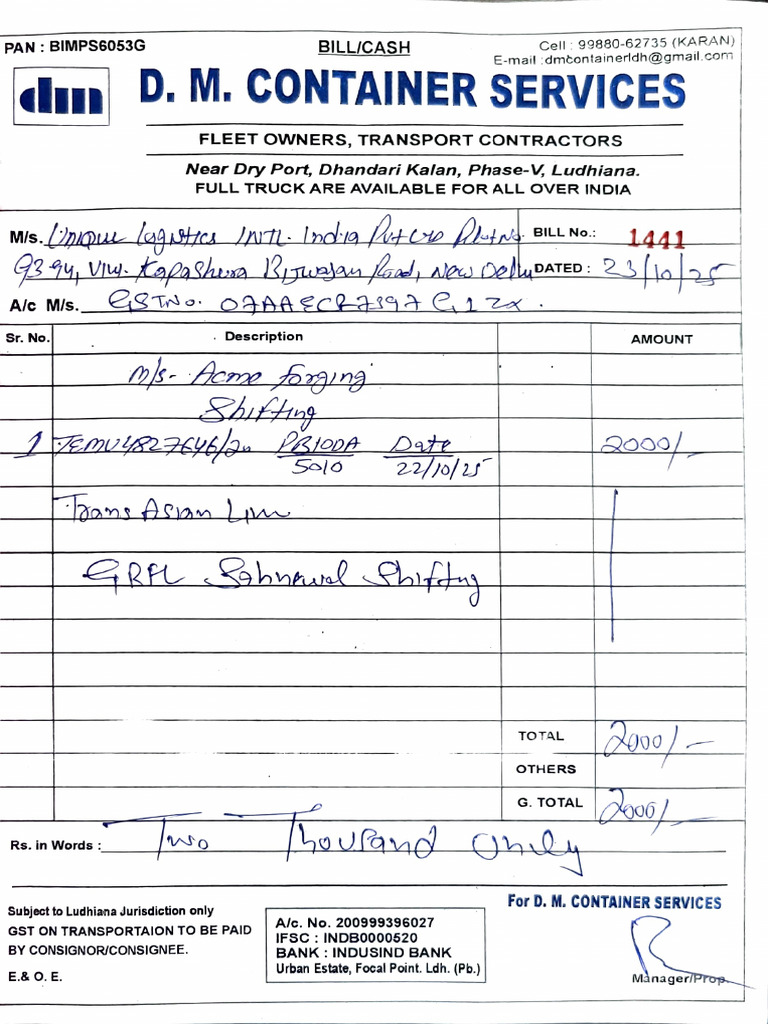 PAN : BIMPS6053G
BILL/CASH
Cell : 99880-62735 (KARAN)
E-mail :dmcontainerldh@gmail.com
dm
D. M. CONTAINER SERVICES
FLEET OWNERS, TRANSPORT CONTRACTORS
Near Dry Port, Dhandari Kalan, Phase-V, Ludhiana.
FULL TRUCK ARE AVAILABLE FOR ALL OVER INDIA
M/s. Unique Logistics INTL. India Pvt Ltd Plot No.
93-94, Vill. Kapashera Bijwasan Road, New Delhi
BILL No.: 1441
DATED : 23/10/25
A/c M/s. GST No.
Sr. No. Description AMOUNT
M/s- Acme Forging
Shifting
1 TEMU4827646/20 PB10DA Date 2000/-
5010 22/10/25
Trans Asian Line
GRFL Sahnewal Shifting
TOTAL 2000/-
OTHERS
G. TOTAL 2000/-
Rs. in Words : Two Thousand Only
Subject to Ludhiana Jurisdiction only
GST ON TRANSPORTAION TO BE PAID
BY CONSIGNOR/CONSIGNEE.
E.& O. E.
A/c. No. 200999396027
IFSC : INDB0000520
BANK : INDUSIND BANK
Urban Estate, Focal Point. Ldh. (Pb.)
For D. M. CONTAINER SERVICES
Manager/Prop.